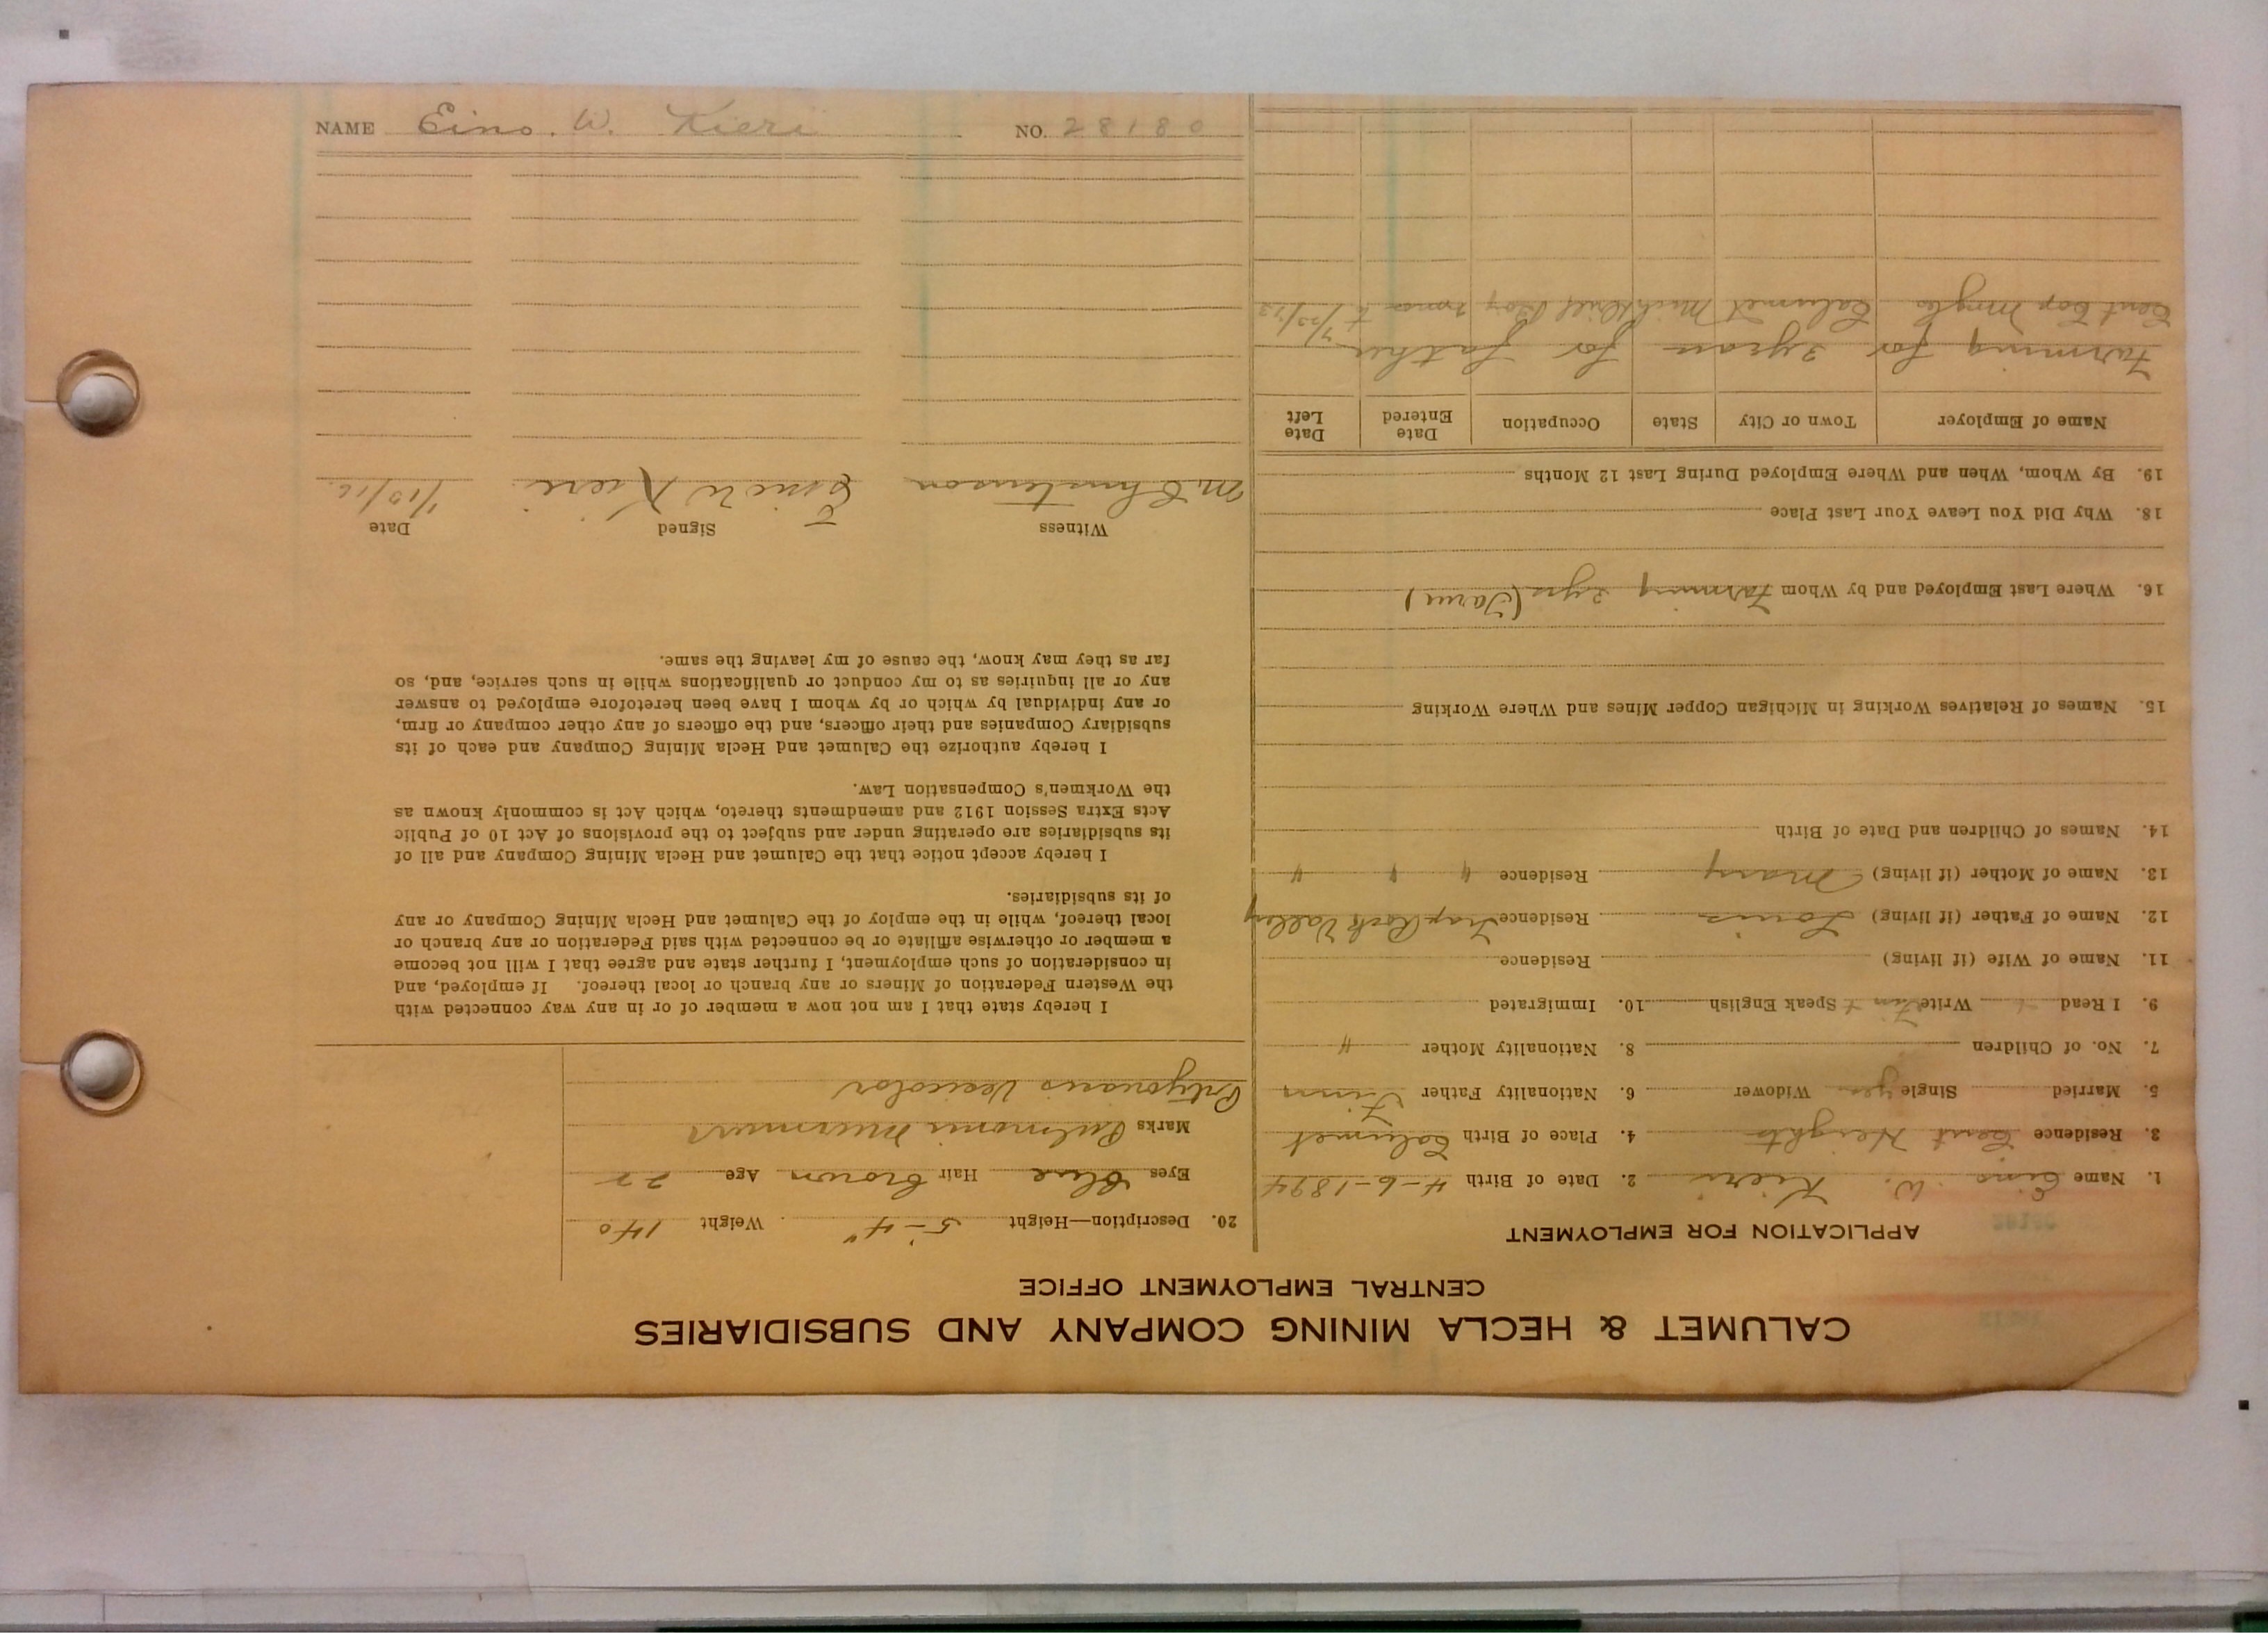 CALUMET & HECLA MINING COMPANY AND SUBSIDIARIES
CENTRAL EMPLOYMENT OFFICE
APPLICATION FOR EMPLOYMENT
1. Name Eino W. Kieri 2. Date of Birth 4-6-1894
3. Residence Cent Heights 4. Place of Birth Calumet
5. Married Single yes Widower 6. Nationality Father Finn
7. No. of Children 8. Nationality Mother "
9. I Read Write Finn Speak English 10. Immigrated
11. Name of Wife (if living) Residence
12. Name of Father (if living) Louis Residence Trap Rock Valley
13. Name of Mother (if living) Mary Residence " " "
14. Names of Children and Date of Birth
15. Names of Relatives Working in Michigan Copper Mines and Where Working
16. Where Last Employed and by Whom Farming 2 yrs (Farm)
18. Why Did You Leave Your Last Place
19. By Whom, When and Where Employed During Last 12 Months
Name of Employer Town or City State Occupation Date Entered Date Left
Farming for 2 years for father
Cent Cop Calumet Mich Drill Boy 7/23/13
20. Description—Height 5'-4" Weight 140
Eyes Blue Hair Brown Age 22
Marks Pulmonis Murmurs
Pityriasis Vesicolor
I hereby state that I am not now a member of or in any way connected with
the Western Federation of Miners or any branch or local thereof. If employed, and
in consideration of such employment, I further state and agree that I will not become
a member or otherwise affiliate or be connected with said Federation or any branch or
local thereof, while in the employ of the Calumet and Hecla Mining Company or any
of its subsidiaries.
I hereby accept notice that the Calumet and Hecla Mining Company and all of
its subsidiaries are operating under and subject to the provisions of Act 10 of Public
Acts Extra Session 1912 and amendments thereto, which Act is commonly known as
the Workmen's Compensation Law.
I hereby authorize the Calumet and Hecla Mining Company and each of its
subsidiary Companies and their officers, and the officers of any other company or firm,
or any individual by which or by whom I have been heretofore employed to answer
any or all inquiries as to my conduct or qualifications while in such service, and, so
far as they may know, the cause of my leaving the same.
Witness Signed Date
M. Christenson Eino W Kieri 1/10/16
NAME Eino. W. Kieri NO. 28180